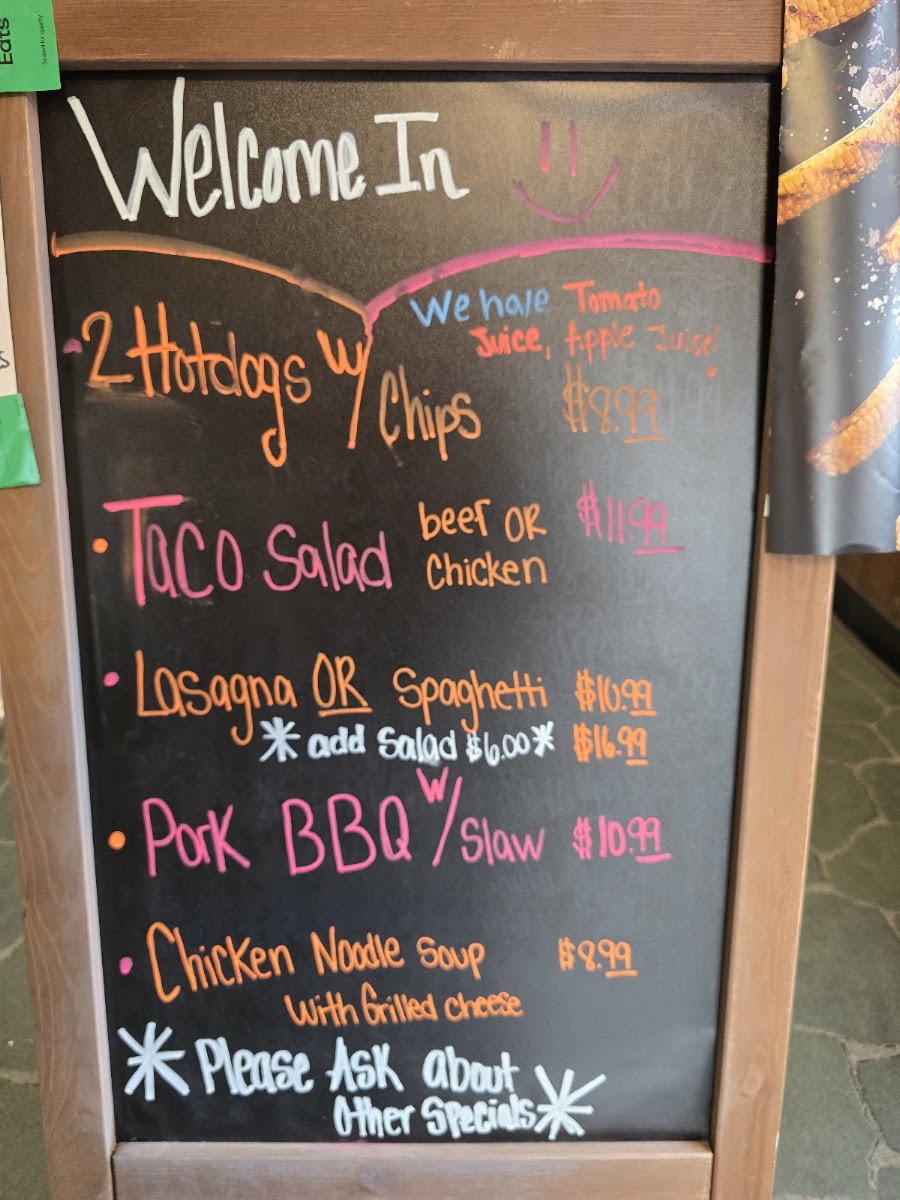 Eats
Sealed for quality
Welcome In
We have Tomato
Juice, Apple Juice!
2 Hotdogs w/ Chips $8.99
Taco Salad beef OR Chicken $11.99
Lasagna OR Spaghetti $10.99
* add Salad $6.00 * $16.99
Pork BBQ w/ Slaw $10.99
Chicken Noodle Soup $8.99
With Grilled cheese
* Please Ask about
Other Specials *